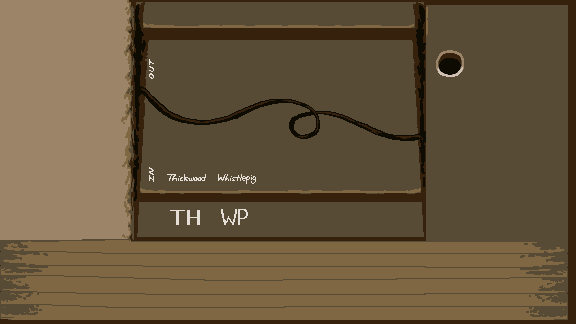 OUT
IN Thickwood Whistlepig
TH WP